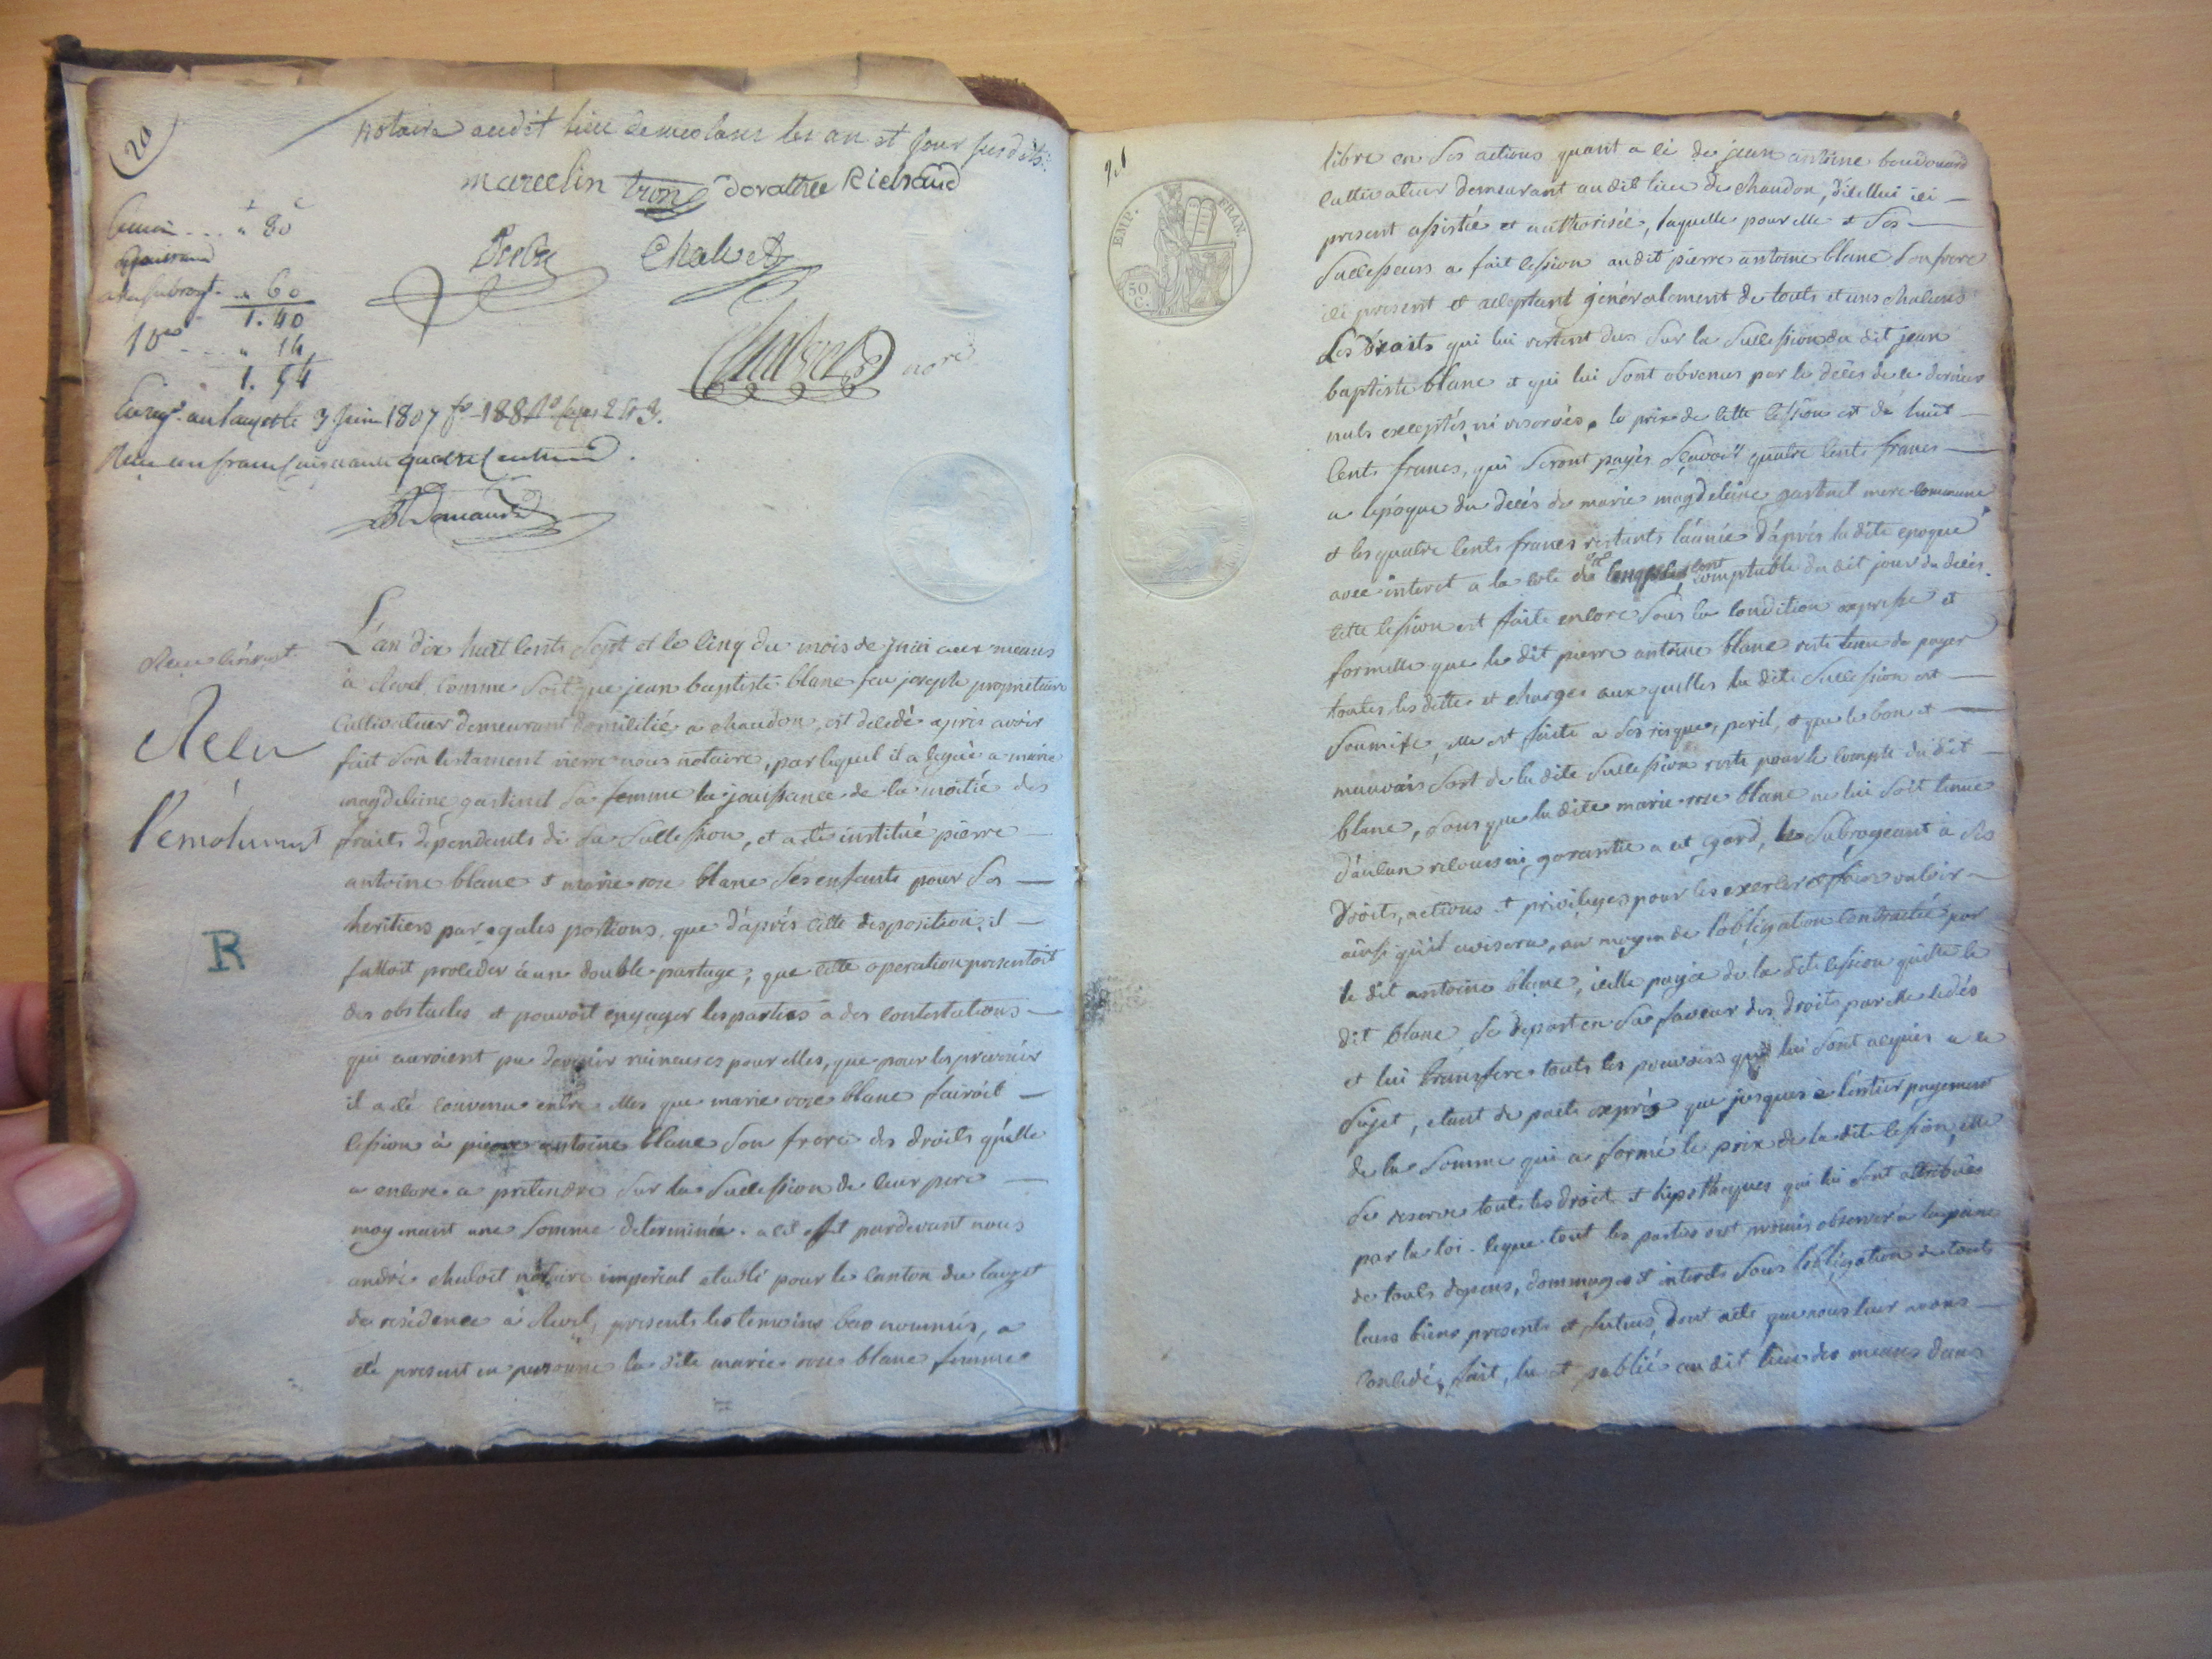 20
notaire audit lieu de meolans les an et jour susdits.
marcelin tron dorathée Richaud
Chalvet
nore
80
60
1. 40
10es .. 14
1. 54
Enregé. au lauzet le 3 Juin 1807 fo 188
Reçu un franc cinquante quatre centimes.
Reçu l'enregt.
Reçu
l'emolument
R
L'an dix huit cents sept et le cinq du mois de juin aux meaux
à Revel, comme soit que jean baptiste blanc feu joseph proprietaire
cultivateur demeurant domicilié a chaudon, est decedé apres avoir
fait son testament rierre nous notaire, par lequel il a legué a marie
magdeleine gastinel sa femme la jouissance de la moitié des
fruits dependents de sa succession, et a été institué pierre
antoine blanc et marie rose blanc ses enfants pour ses
heritiers par egales portions, que d'aprés cette disposition, il
falloit proceder à une double partage, que cette operation presentoit
des obstacles et pouvoit engager les parties à des contestations
qui auroient pu devenir ruineuses pour elles, que pour les prevenir
il a été convenu entre elles que marie rose blanc fairoit
cession à pierre antoine blanc son frere des droits qu'elle
a encore a pretendre sur la succession de leur pere
moyenant une somme determinée. a cet effet pardevant nous
andré chalvet notaire imperial etabli pour le canton du lauzet
de residence à Revel, presents les temoins bas nommés, a
été present en personne la dite marie rose blanc femme
libre en ses actions quant a ce de jean antoine baudouard
cultivateur demeurant audit lieu de chaudon, d'icellui ici
present assistée et authorisée, laquelle pour elle et ses
successeurs a fait cession audit pierre antoine blanc son frere
ici present et acceptant generalement de touts et uns chacuns
les droits qui lui restent dus sur la succession du dit jean
baptiste blanc et qui lui sont obvenus par le décès de ce dernier
nuls exceptés ni reservés. le prix de cette cession est de huit
cents francs, qui seront payés sçavoir quatre cents francs
a l'époque du decés de marie magdeleine gastinel mere commune
et les quatre cents francs restants l'année d'aprés la dite epoque
avec interet a la cote de cinq pour cent comptable du dit jour du decès.
cette cession est faite encore sous la condition expresse et
formelle que le dit pierre antoine blanc reste tenu de payer
toutes les dettes et charges aux quelles la dite succession est
soumise, elle est faite a ses risque, peril, et que le bon et
mauvais sort de la dite succession reste pour le compte du dit
blanc, sans que la dite marie rose blanc ne lui soit tenue
d'aucun recours ni garantie a cet egard, le subrogeant à ses
droits, actions et privileges pour les exercer et faire valoir
ainsi qu'il avisera, au moyen de l'obligation contractée par
le dit antoine blanc, icelle payée de la dite cession quitte le
dit blanc, se depart en sa faveur des droits par elle cedés
et lui transfere touts les pouvoirs qui lui sont acquis a ce
sujet, etant de pacte exprés que jusques à l'entier payement
de la somme qui a formé le prix de la dite cession, elle
se reserve touts les droits et hipotheques qui lui sont attribués
par la loi. le que tout les parties ont promis observer à la peine
de touts depens, dommages et interets sous l'obligation de touts
leurs biens presents et futurs, dont acte que nous leur avons
concedé, fait, lu et publié audit lieu des meaux dans
EMP. FRAN.
50 C.